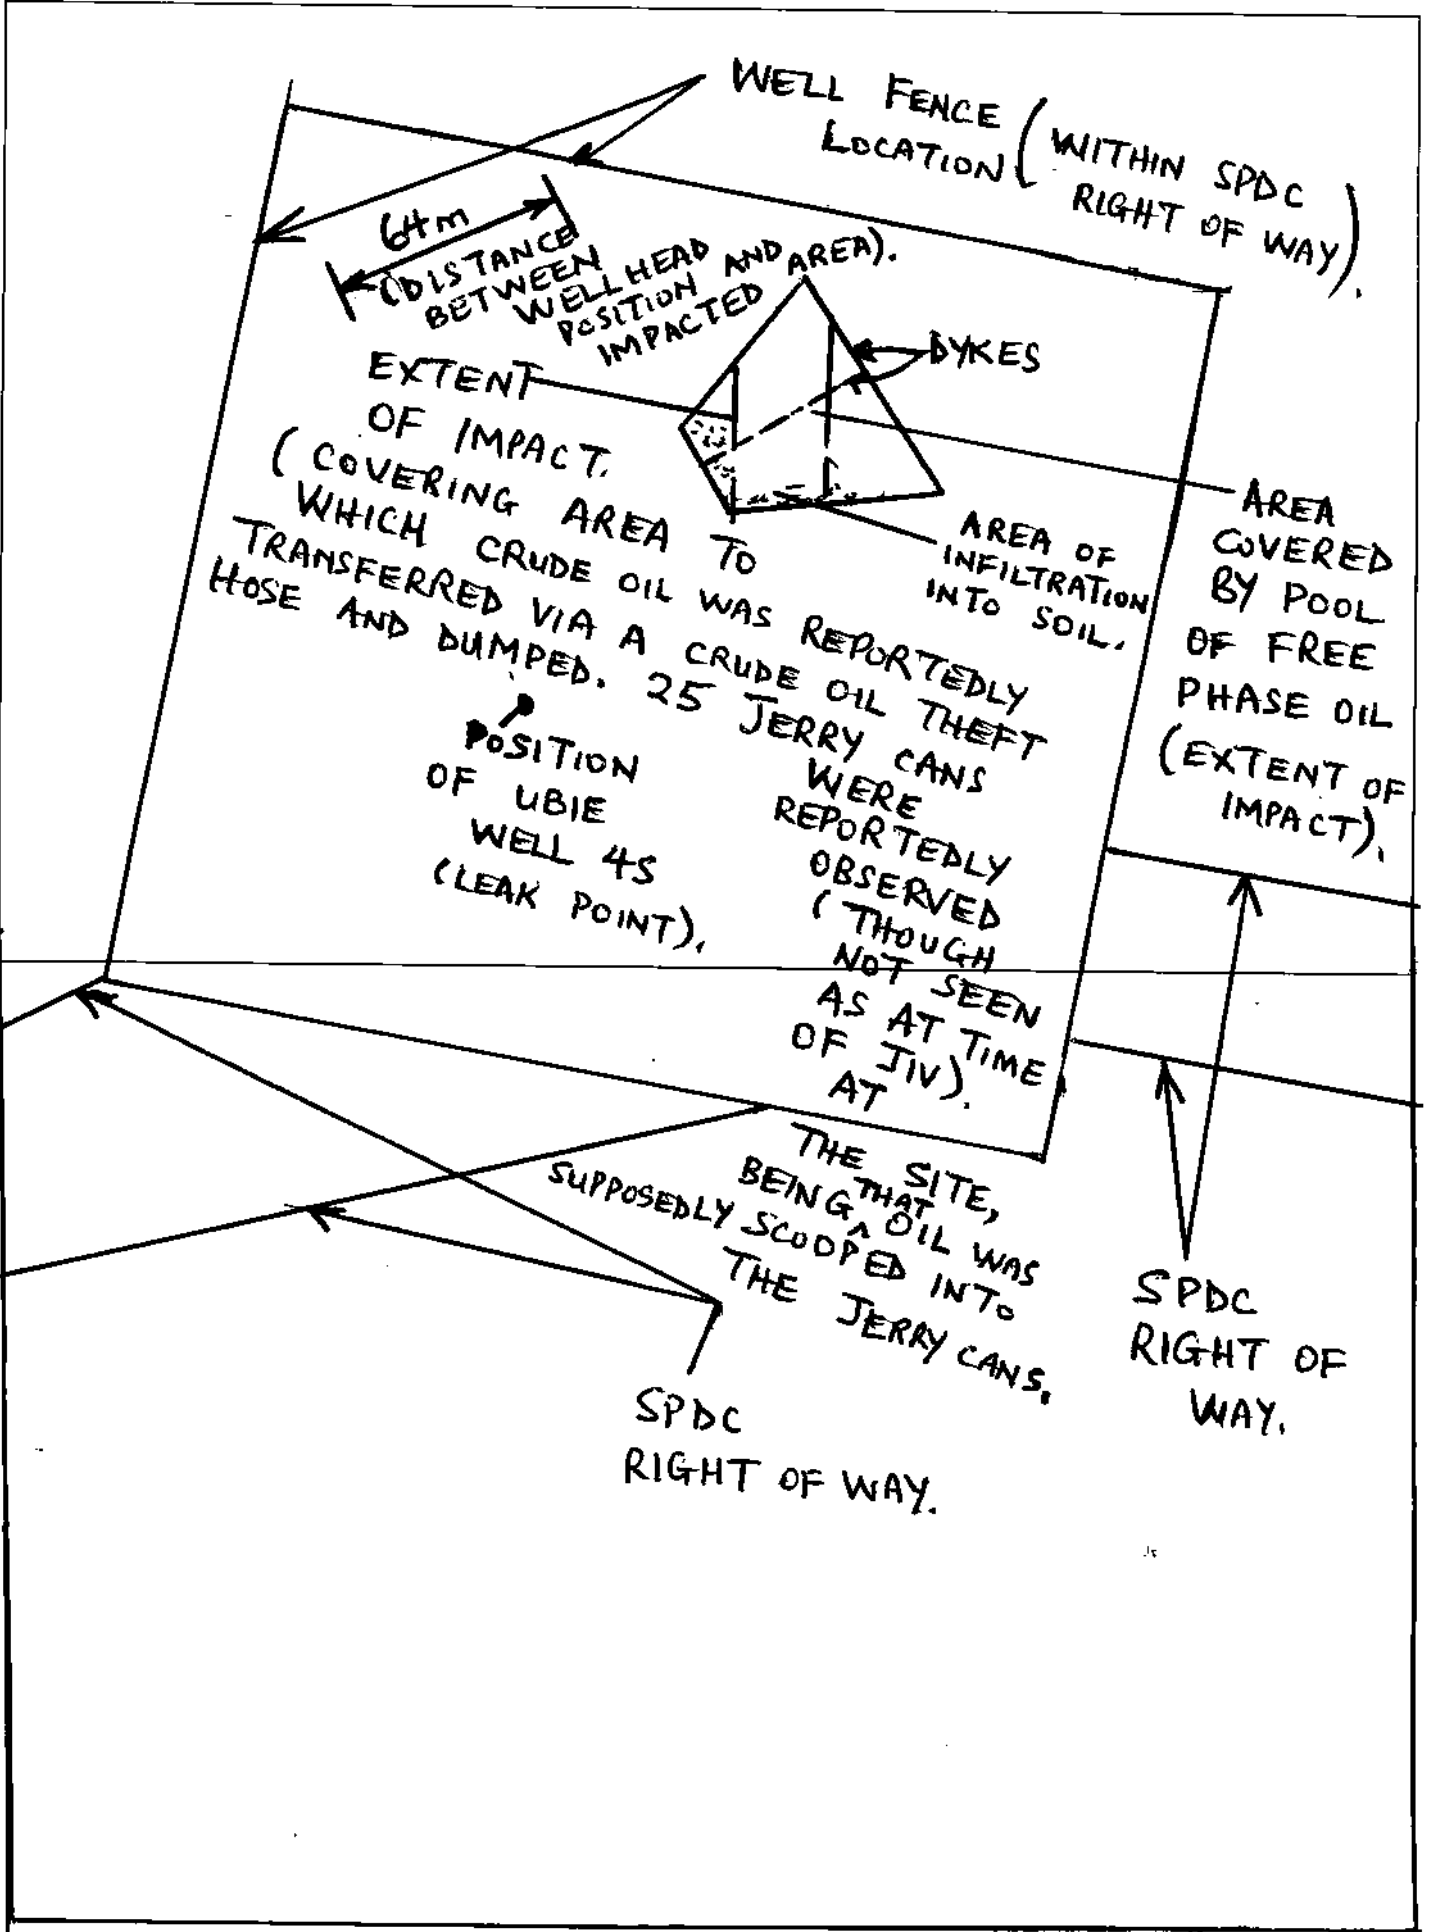 WELL FENCE
LOCATION (WITHIN SPDC
RIGHT OF WAY).
64m
(DISTANCE
BETWEEN
WELLHEAD
POSITION AND
IMPACTED AREA).
DYKES
EXTENT
OF IMPACT.
(COVERING AREA TO
WHICH CRUDE OIL WAS REPORTEDLY
TRANSFERRED VIA A CRUDE OIL THEFT
HOSE AND DUMPED. 25 JERRY CANS
WERE
REPORTEDLY
OBSERVED
(THOUGH
NOT SEEN
AS AT TIME
OF JIV).
AT
THE SITE,
BEING THAT OIL WAS
SUPPOSEDLY SCOOPED INTO
THE JERRY CANS.
AREA OF
INFILTRATION
INTO SOIL.
AREA
COVERED
BY POOL
OF FREE
PHASE OIL
(EXTENT OF
IMPACT).
POSITION
OF UBIE
WELL 4S
(LEAK POINT).
SPDC
RIGHT OF
WAY.
SPDC
RIGHT OF WAY.